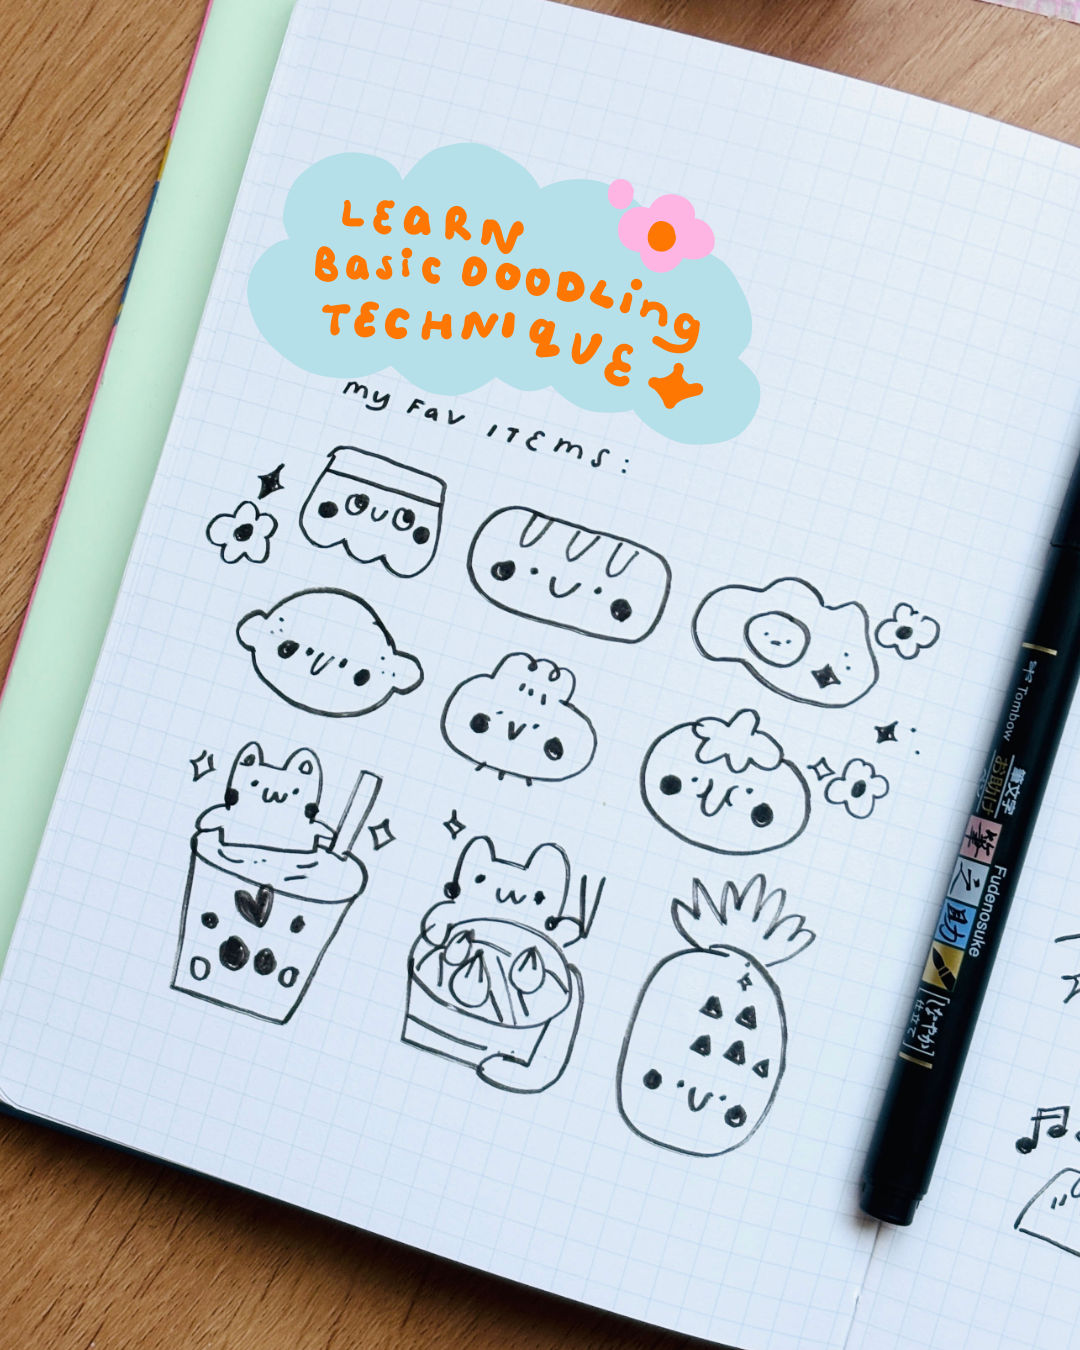 LEARN
Basic DOODLing
TECHNIQUE
my FaV ITEmS:
Tombow
筆文字
お助け
筆之助
Fudenosuke
しなやか
仕立て